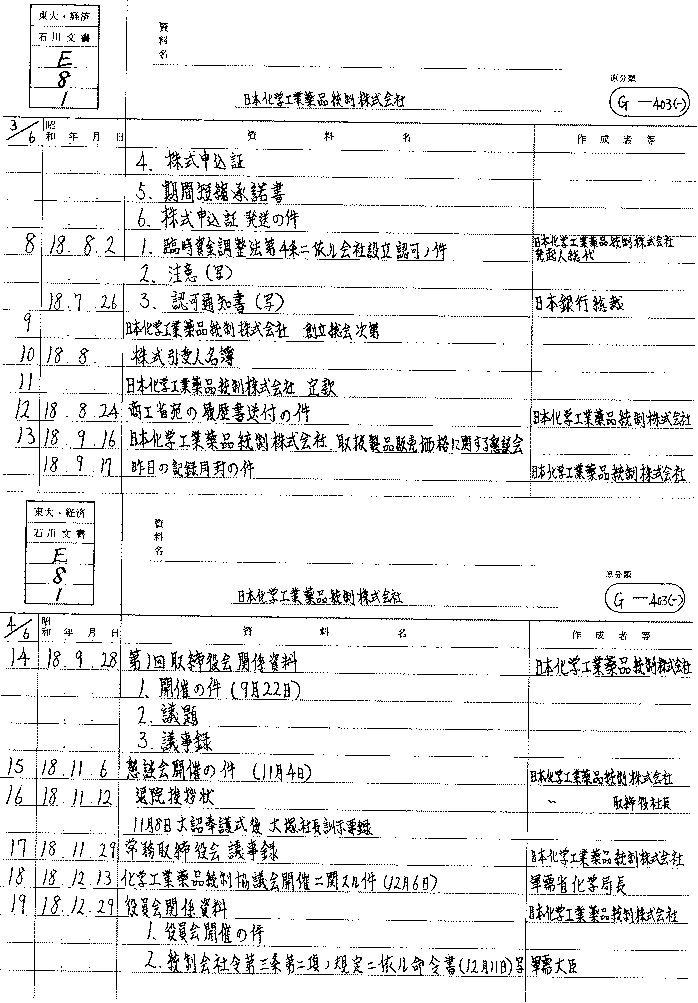 東大・経済
石川文書
E
8
1
資料名
日本化学工業薬品統制株式会社
原分類
G-403(-)
3/6 昭和 年 月 日 資料名 作成者等
4. 株式申込証
5. 期間短縮承諾書
6. 株式申込証発送の件
8 18.8.2 1. 臨時資金調整法第4条ニ依ル会社設立認可ノ件 日本化学工業薬品統制株式会社
発起人総代
2. 注意(写)
18.7.26 3. 認可通知書(写) 日本銀行総裁
9 日本化学工業薬品統制株式会社 創立総会次第
10 18.8. 株式引受人名簿
11 日本化学工業薬品統制株式会社 定款
12 18.8.24 商工省宛の履歴書送付の件 日本化学工業薬品統制株式会社
13 18.9.16 日本化学工業薬品統制株式会社 取扱製品販売価格に関する懇談会
18.9.17 昨日の記録同封の件 日本化学工業薬品統制株式会社
東大・経済
石川文書
E
8
1
資料名
日本化学工業薬品統制株式会社
原分類
G-403(-)
4/6 昭和 年 月 日 資料名 作成者等
14 18.9.28 第1回取締役会関係資料 日本化学工業薬品統制株式会社
1. 開催の件(9月22日)
2. 議題
3. 議事録
15 18.11.6 懇談会開催の件(11月4日) 日本化学工業薬品統制株式会社
16 18.11.12 退院挨拶状 〃 取締役社長
11月8日大詔奉護式後 大塚社長訓示要録
17 18.11.29 常務取締役会議事録 日本化学工業薬品統制株式会社
18 18.12.13 化学工業薬品統制協議会開催ニ関スル件(12月6日) 軍需省化学局長
19 18.12.29 役員会関係資料 日本化学工業薬品統制株式会社
1. 役員会開催の件
2. 統制会社令第三条第二項ノ規定ニ依ル命令書(12月11日)写 軍需大臣